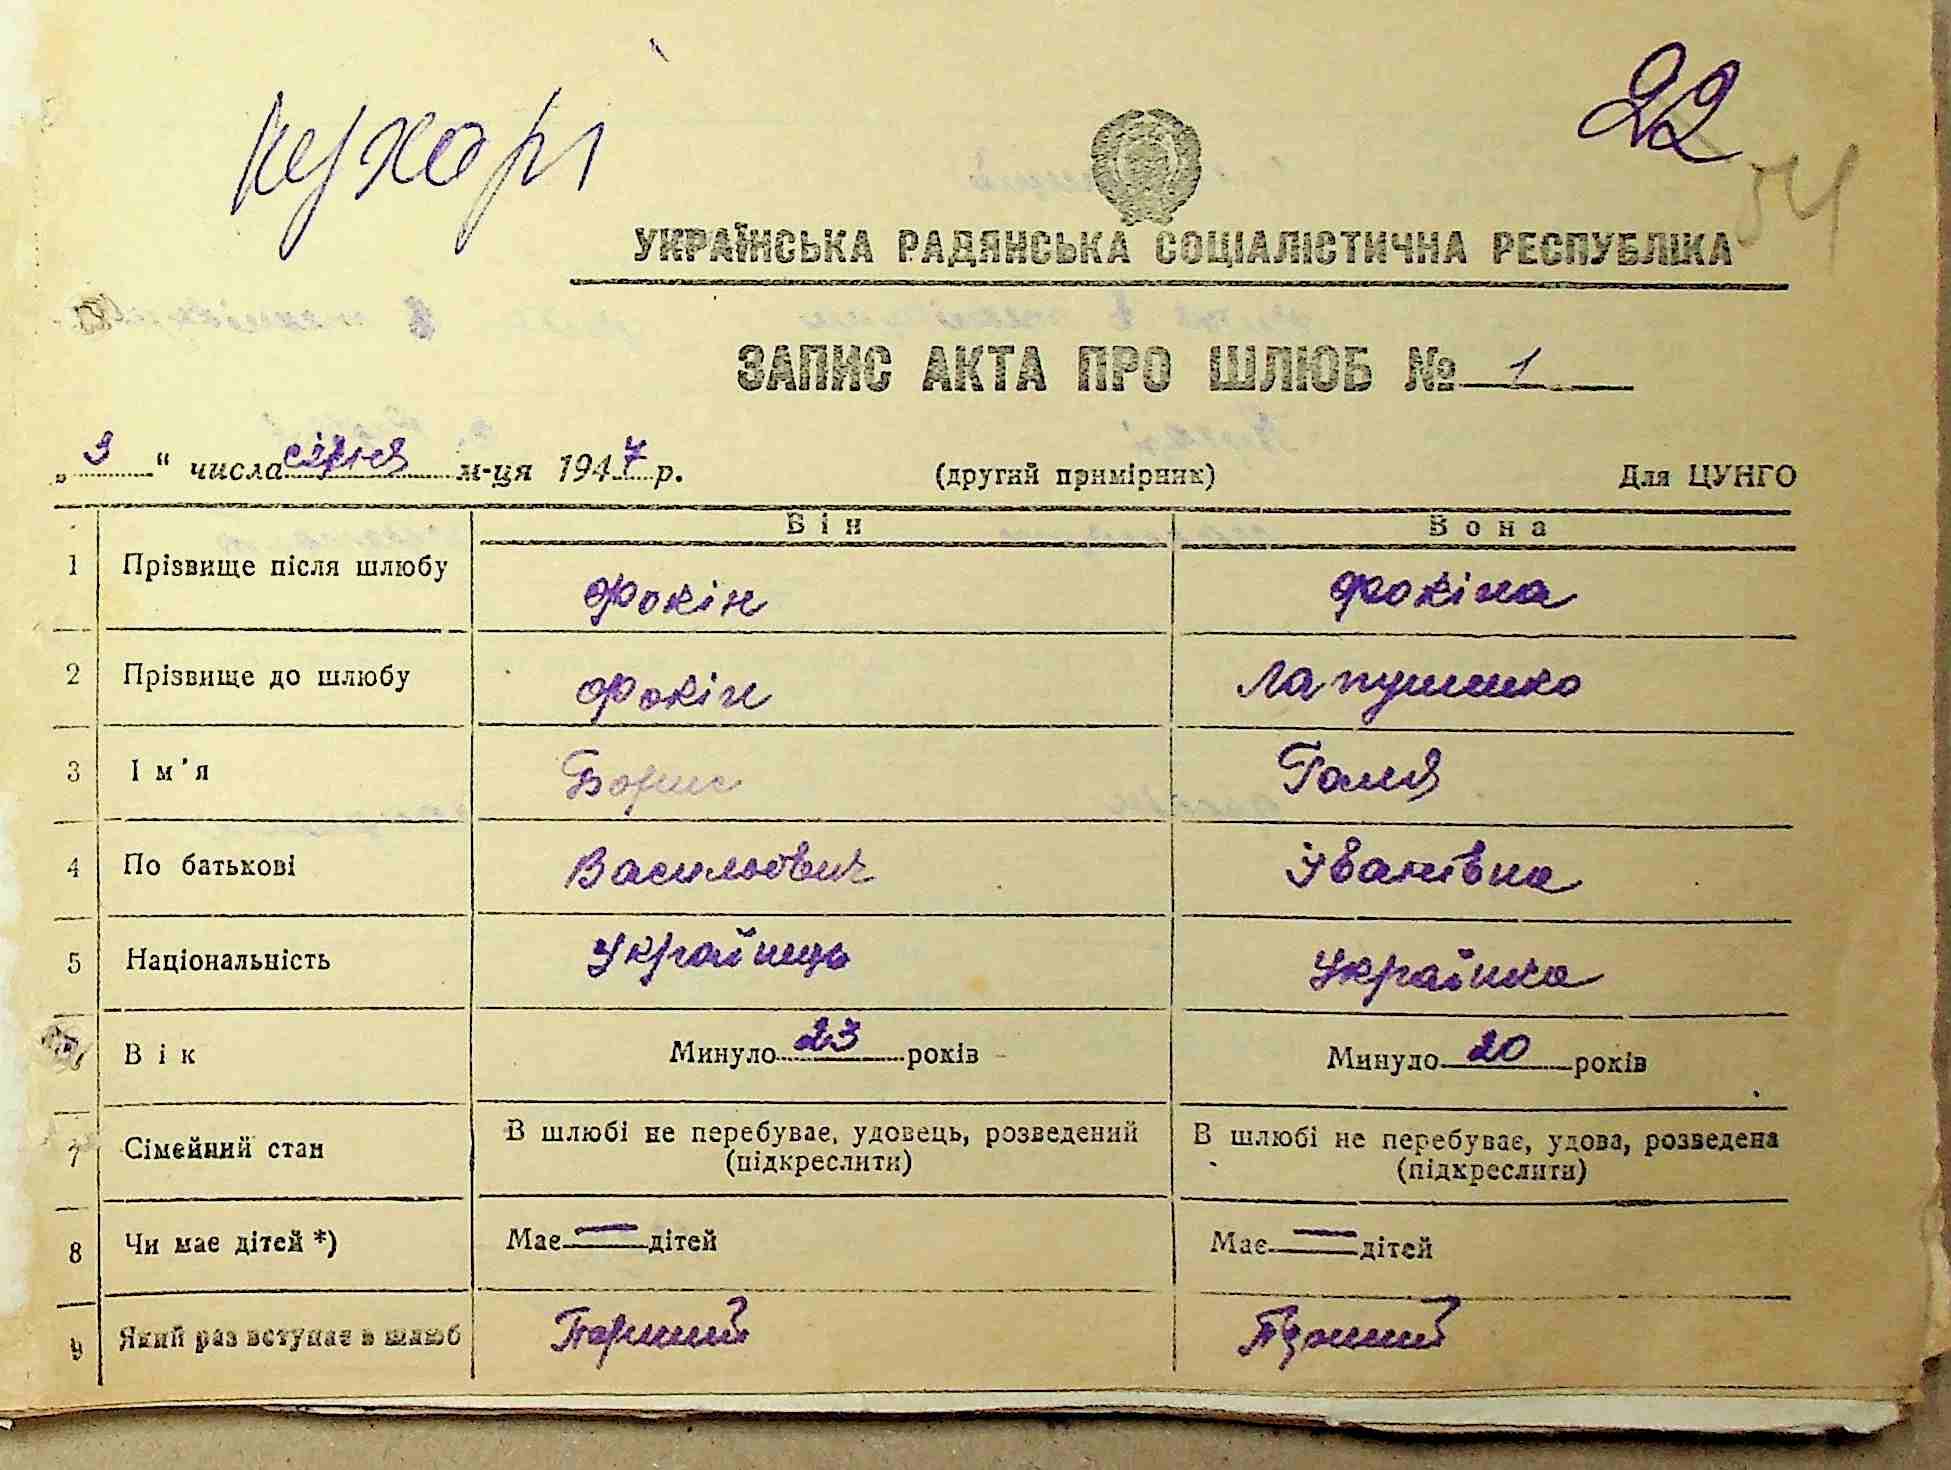 Кухарі
22
54
УКРАЇНСЬКА РАДЯНСЬКА СОЦІАЛІСТИЧНА РЕСПУБЛІКА
ЗАПИС АКТА ПРО ШЛЮБ № 1
„3“ числа січня м-ця 1947 р. (другий примірник) Для ЦУНГО
Він Вона
1 Прізвище після шлюбу Фокін Фокіна
2 Прізвище до шлюбу Фокін Лапушенко
3 Ім'я Борис Галя
4 По батькові Василович Іванівна
5 Національність Українець Українка
Вік Минуло 23 років Минуло 20 років
7 Сімейний стан В шлюбі не перебуває, удовець, розведений (підкреслити) В шлюбі не перебуває, удова, розведена (підкреслити)
8 Чи має дітей *) Має — дітей Має — дітей
9 Який раз вступає в шлюб Перший Перший